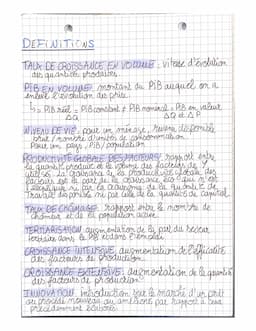 DEFINITIONS
TAUX DE CROISSANCE EN VOLUME : vitesse d'évolution
des quantités produites
PIB EN VOLUME : montant du PIB auquel on a
enlevé l'évolution des prix.
↳ = PIB réel = PIB constant ≠ PIB nominal = PIB en valeur
ΔQ ΔQ et ΔP
NIVEAU DE VIE : pour un ménage, revenu disponible
brut / nombre d'unités de consommation
Pour un pays, PIB / population
PRODUCTIVITÉ GLOBALE DES FACTEURS : rapport entre
la quantité produite et le volume des facteurs de
utilisés. La croissance de la productivité globale des
facteurs est la part de la croissance
explique ni par la croissance de la quantité de
travail ni par celle de la quantité de capital.
TAUX DE CHÔMAGE : rapport entre le nombre de
chômeurs et de la population active.
TERTIARISATION : augmentation de la part du secteur
tertiaire dans le PIB et dans l'emploi
CROISSANCE INTENSIVE : augmentation de l'efficacité
des facteurs de production.
CROISSANCE EXTENSIVE : augmentation de la quantité
des facteurs de production.
INNOVATION : introduction sur le marché d'un pdt
ou procédé nouveau ou amélioré par rapport à ceux
précédemment